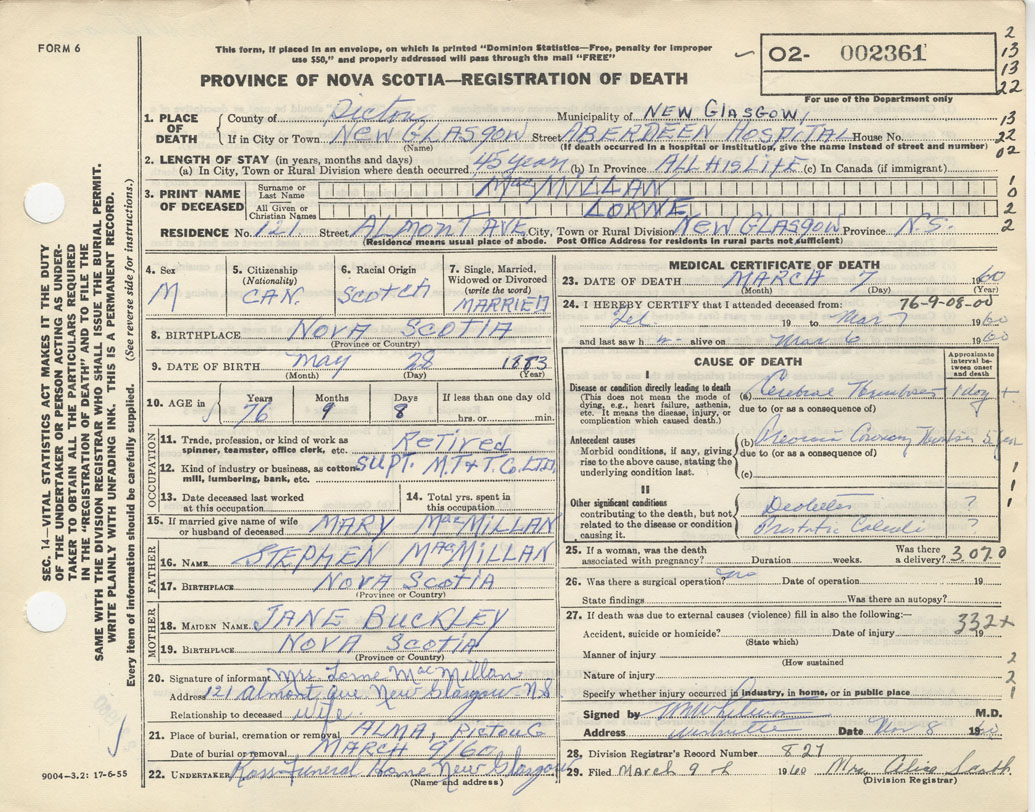 FORM 6
This form, if placed in an envelope, on which is printed "Dominion Statistics—Free, penalty for improper
use $50," and properly addressed will pass through the mail "FREE"
PROVINCE OF NOVA SCOTIA—REGISTRATION OF DEATH
02- 002361
For use of the Department only
2
13
13
22
13
11
02
1
0
2
2
1. PLACE OF DEATH
County of Pictou Municipality of NEW GLASGOW
If in City or Town NEW GLASGOW Street ABERDEEN HOSPITAL House No.
(Name) (If death occurred in a hospital or institution, give the name instead of street and number)
2. LENGTH OF STAY (in years, months and days)
(a) In City, Town or Rural Division where death occurred 45 years (b) In Province ALL HIS LIFE (c) In Canada (if immigrant)
3. PRINT NAME OF DECEASED
Surname or Last Name MacMILLAN
All Given or Christian Names LORNE
RESIDENCE No. 121 Street ALMONT AVE City, Town or Rural Division NEW GLASGOW Province N.S.
(Residence means usual place of abode. Post Office Address for residents in rural parts not sufficient)
4. Sex M
5. Citizenship (Nationality) CAN.
6. Racial Origin SCOTCH
7. Single, Married, Widowed or Divorced (write the word) MARRIED
8. BIRTHPLACE NOVA SCOTIA
(Province or Country)
9. DATE OF BIRTH May 28 1883
(Month) (Day) (Year)
10. AGE in Years Months Days If less than one day old
76 9 8 hrs. or min.
OCCUPATION
11. Trade, profession, or kind of work as spinner, teamster, office clerk, etc. RETIRED
12. Kind of industry or business, as cotton mill, lumbering, bank, etc. SUPT. M.T.&T. Co. LTD.
13. Date deceased last worked at this occupation
14. Total yrs. spent in this occupation
15. If married give name of wife or husband of deceased MARY MacMILLAN
FATHER
16. NAME STEPHEN MacMILLAN
17. BIRTHPLACE NOVA SCOTIA
(Province or Country)
MOTHER
18. MAIDEN NAME JANE BUCKLEY
19. BIRTHPLACE NOVA SCOTIA
(Province or Country)
20. Signature of informant Mrs. Lorne MacMillan
Address 121 Almont Ave. New Glasgow N.S
Relationship to deceased wife
21. Place of burial, cremation or removal ALMA, PICTOU Co
Date of burial or removal MARCH 9/60
22. UNDERTAKER Ross Funeral Home New Glasgow
(Name and address)
MEDICAL CERTIFICATE OF DEATH
23. DATE OF DEATH MARCH 7 1960
(Month) (Day) (Year)
24. I HEREBY CERTIFY that I attended deceased from: 76-9-08-00
Feb 19 to Mar 7 1960
and last saw h m alive on Mar 6 1960
CAUSE OF DEATH
Approximate interval between onset and death
I
Disease or condition directly leading to death
(This does not mean the mode of dying, e.g., heart failure, asthenia, etc. It means the disease, injury, or complication which caused death.)
(a) Cerebral Thrombosis 1 day +
due to (or as a consequence of)
Antecedent causes
Morbid conditions, if any, giving rise to the above cause, stating the underlying condition last.
(b) Previous Coronary Thrombosis
due to (or as a consequence of)
(c)
II
Other significant conditions
contributing to the death, but not related to the disease or condition causing it.
Diabetes ?
Prostatic Calculi ?
1
1
1
25. If a woman, was the death associated with pregnancy? Duration weeks. Was there a delivery? 3070
26. Was there a surgical operation? no Date of operation 19
State findings Was there an autopsy?
27. If death was due to external causes (violence) fill in also the following:—
332+
Accident, suicide or homicide? Date of injury 19
(State which)
Manner of injury
(How sustained
Nature of injury
Specify whether injury occurred in industry, in home, or in public place
2
2
1
Signed by M.D.
Address Westville Date Mar 8 1960
28. Division Registrar's Record Number 827
29. Filed March 9th 1960 Mrs. Alice
(Division Registrar)
SEC. 14—VITAL STATISTICS ACT MAKES IT THE DUTY
OF THE UNDERTAKER OR PERSON ACTING AS UNDER-
TAKER TO OBTAIN ALL THE PARTICULARS REQUIRED
IN THE "REGISTRATION OF DEATH" AND TO FILE THE
SAME WITH THE DIVISION REGISTRAR WHO SHALL ISSUE THE BURIAL PERMIT.
WRITE PLAINLY WITH UNFADING INK. THIS IS A PERMANENT RECORD.
Every item of information should be carefully supplied. (See reverse side for instructions.)
9004—3.2: 17-6-55